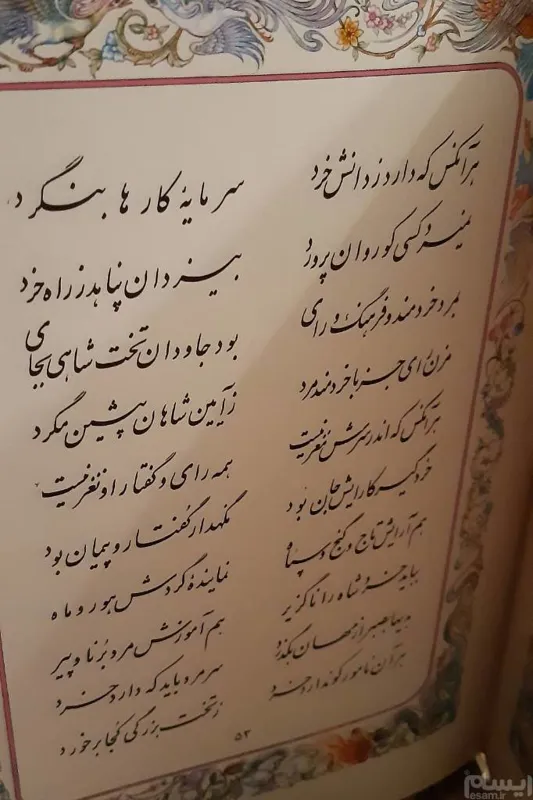 هرآنکس که دارد ز دانش خرد
سرمایهٔ کارها بنگرد
نمیرد کسی کو روان پرورد
بیزدان پناهد ز راه خرد
بمرد خردمند و فرهنگ و رای
بود جاودان تخت شاهی بجای
مزن رای جز با خردمند مرد
ز آیین شاهان پیشین مگرد
هرآنکس که اندر سرش مغز نیست
همه رای و گفتار او نغز نیست
خرد گیر کارایش جان بود
نگهدار گفتار و پیمان بود
هم آرایش تاج و گنج و سپاه
نمایندهٔ گردش هور و ماه
بباید خرد شاه را ناگزیر
هم آموزش مرد برنا و پیر
بدیبا صبر از مهان بگذرد
سر مرد باید که دارد خرد
هرآن نامور کو ندارد خرد
ز تخت بزرگی کجا برخورد
۵۳
ایسام
esam.ir